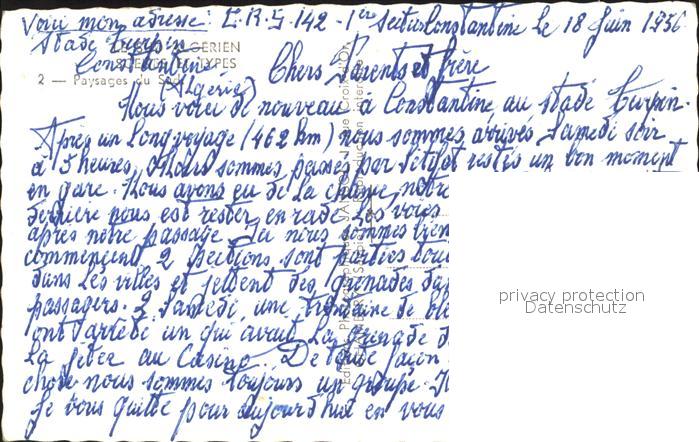 Voici mon adresse: C.R.G. 142 - 1ère Section Constantine Le 18 Juin 1956
Stade Turpin
Constantine
(Algérie)
ALGÉRIEN
TYPES
2 — Paysages du Sud
Chers Parents et frère
Nous voici de nouveau à Constantine au stade Turpin.
Après un long voyage (462 km) nous sommes arrivés Samedi soir
à 5 heures. Nous sommes passés par Sétif et restés un bon moment
en gare. Nous avons eu de la chance, notre
dernière nous est rester en rade. Les voies
après notre passage. Ici nous sommes bien
commencent 2 sections sont parties
dans les villes et jettent des grenades
passagers. Samedi, une trentaine de
ont arrêté un qui avait la grenade
la jeter au Casino. De toute façon
chose nous sommes toujours un groupe.
Je vous quitte pour aujourd'hui en vous
privacy protection
Datenschutz